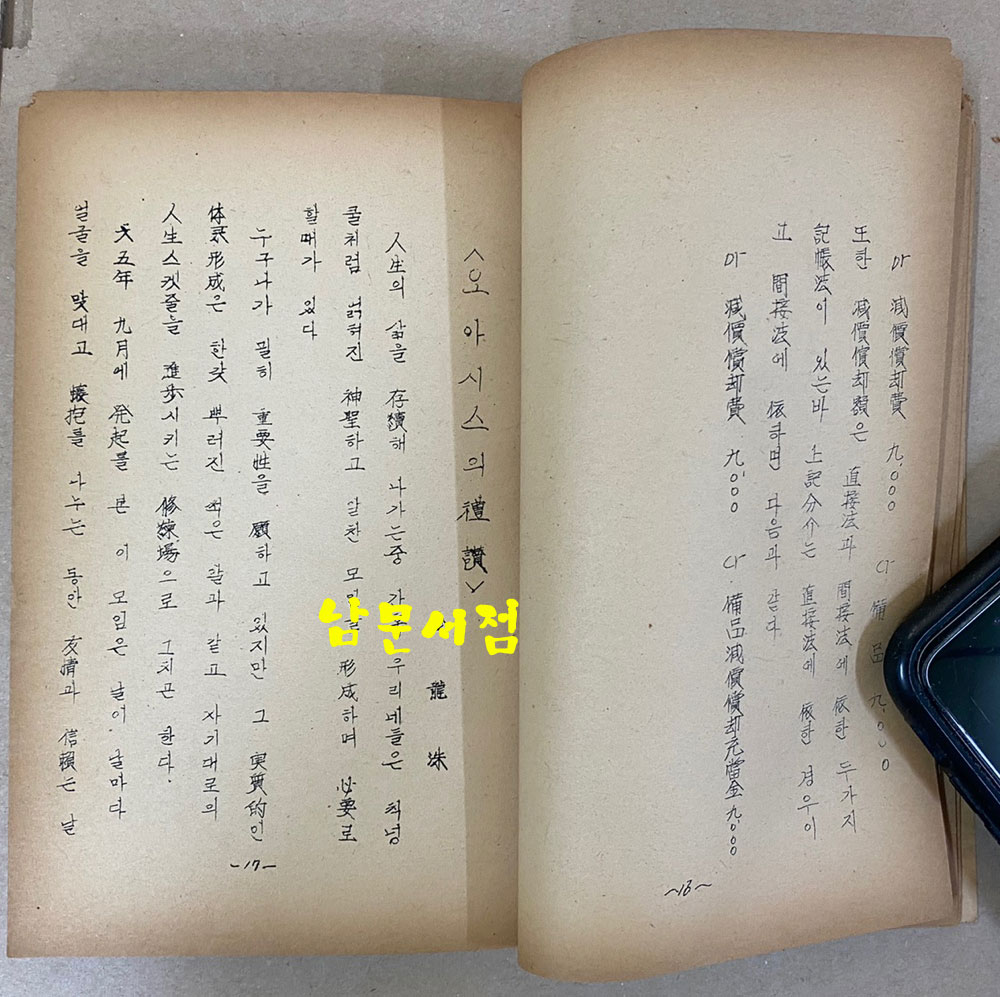 Dr 減價償却費 九,000 Cr 備品 九,000
또한 減價償却額은 直接法과 間接法에 依한 두가지
記帳法이 있는바 上記分介는 直接法에 依한 경우이
고 間接法에 依하면 다음과 같다
Dr 減價償却費 九,000 Cr 備品減價償却充當金 九,000
~16~
<오아시스의 禮讚>
龍洙
人生의 삶을 存續해 나가는중 가 우리네들은 칙넝
쿨처럼 얽혀진 神聖하고 알찬 모 形成하며 必要로
할때가 있다
누구나가 필히 重要性을 願하고 있지만 그 実質的인
体系形成은 한갖 뿌려진 씨은 알과 같고 자기대로의
人生스켓줄을 進歩시키는 修練場으로 그치곤 한다.
五年 九月에 発起를 본 이 모임은 날이 날마다
얼굴을 맞대고 懷抱를 나누는 동안 友情과 信賴는 날
-17-
남문서점